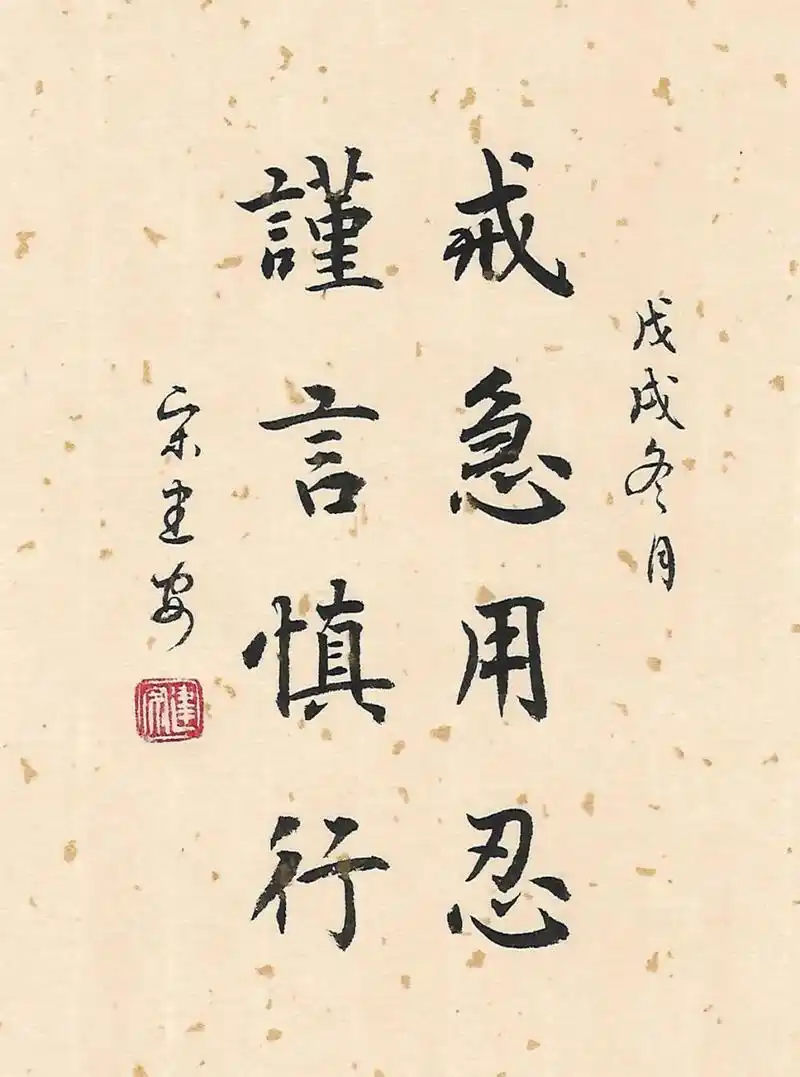 戊戌冬月
戒急用忍
謹言慎行
宋建安